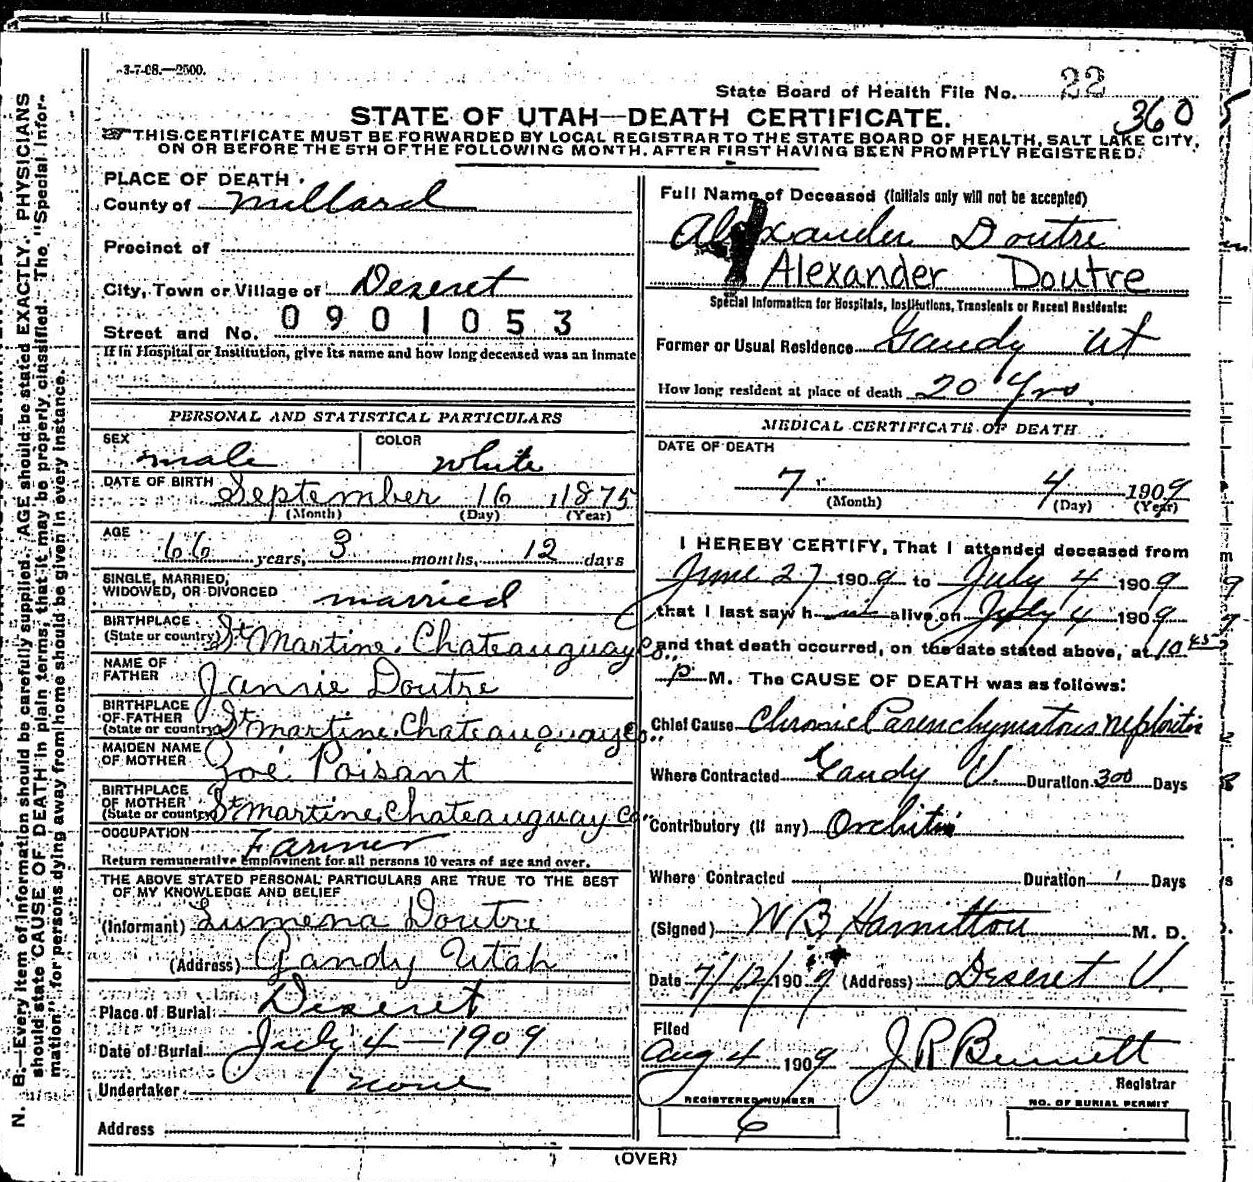 3-7-08.—2500.
State Board of Health File No. 22
360
STATE OF UTAH—DEATH CERTIFICATE.
THIS CERTIFICATE MUST BE FORWARDED BY LOCAL REGISTRAR TO THE STATE BOARD OF HEALTH, SALT LAKE CITY,
ON OR BEFORE THE 5TH OF THE FOLLOWING MONTH, AFTER FIRST HAVING BEEN PROMPTLY REGISTERED.
N. B.—Every item of information should be carefully supplied. AGE should be stated EXACTLY. PHYSICIANS
should state CAUSE OF DEATH in plain terms, that it may be properly classified. The "Special Infor-
mation" for persons dying away from home should be given in every instance.
PLACE OF DEATH
County of Millard
Precinct of
City, Town or Village of Deseret
Street and No. 0901053
If in Hospital or Institution, give its name and how long deceased was an inmate
PERSONAL AND STATISTICAL PARTICULARS
SEX male COLOR white
DATE OF BIRTH September 16, 1875
(Month) (Day) (Year)
AGE 66 years, 3 months, 12 days
SINGLE, MARRIED,
WIDOWED, OR DIVORCED married
BIRTHPLACE
(State or country) St Martine, Chateauguay Co.
NAME OF
FATHER Jannie Doutre
BIRTHPLACE
OF FATHER
(State or country) St Martine, Chateauguay Co.
MAIDEN NAME
OF MOTHER Zoé Poisant
BIRTHPLACE
OF MOTHER
(State or country) St Martine, Chateauguay Co.
OCCUPATION Farmer
Return remunerative Employment for all persons 10 years of age and over.
THE ABOVE STATED PERSONAL PARTICULARS ARE TRUE TO THE BEST
OF MY KNOWLEDGE AND BELIEF
(Informant) Lumena Doutre
(Address) Gandy Utah
Place of Burial Deseret
Date of Burial July 4—1909
Undertaker none
Address
Full Name of Deceased (Initials only will not be accepted)
Alexander Doutre
Alexander Doutre
Special Information for Hospitals, Institutions, Transients or Recent Residents:
Former or Usual Residence Gandy Ut
How long resident at place of death 20 Yrs.
MEDICAL CERTIFICATE OF DEATH
DATE OF DEATH
7 4 1909
(Month) (Day) (Year)
I HEREBY CERTIFY, That I attended deceased from
June 27 1909 to July 4 1909
that I last saw h im alive on July 4 1909
and that death occurred, on the date stated above, at 10 45
P M. The CAUSE OF DEATH was as follows:
Chief Cause Chronic Parenchymatous nephritis
Where Contracted Gandy U. Duration 300 Days
Contributory (if any) Orchitis
Where Contracted Duration Days
(Signed) W B Hamilton M. D.
Date 7/12/1909 (Address) Deseret U.
Filed
Aug 4 1909 J R Bennett
Registrar
REGISTERED NUMBER
6
NO. OF BURIAL PERMIT
(OVER)